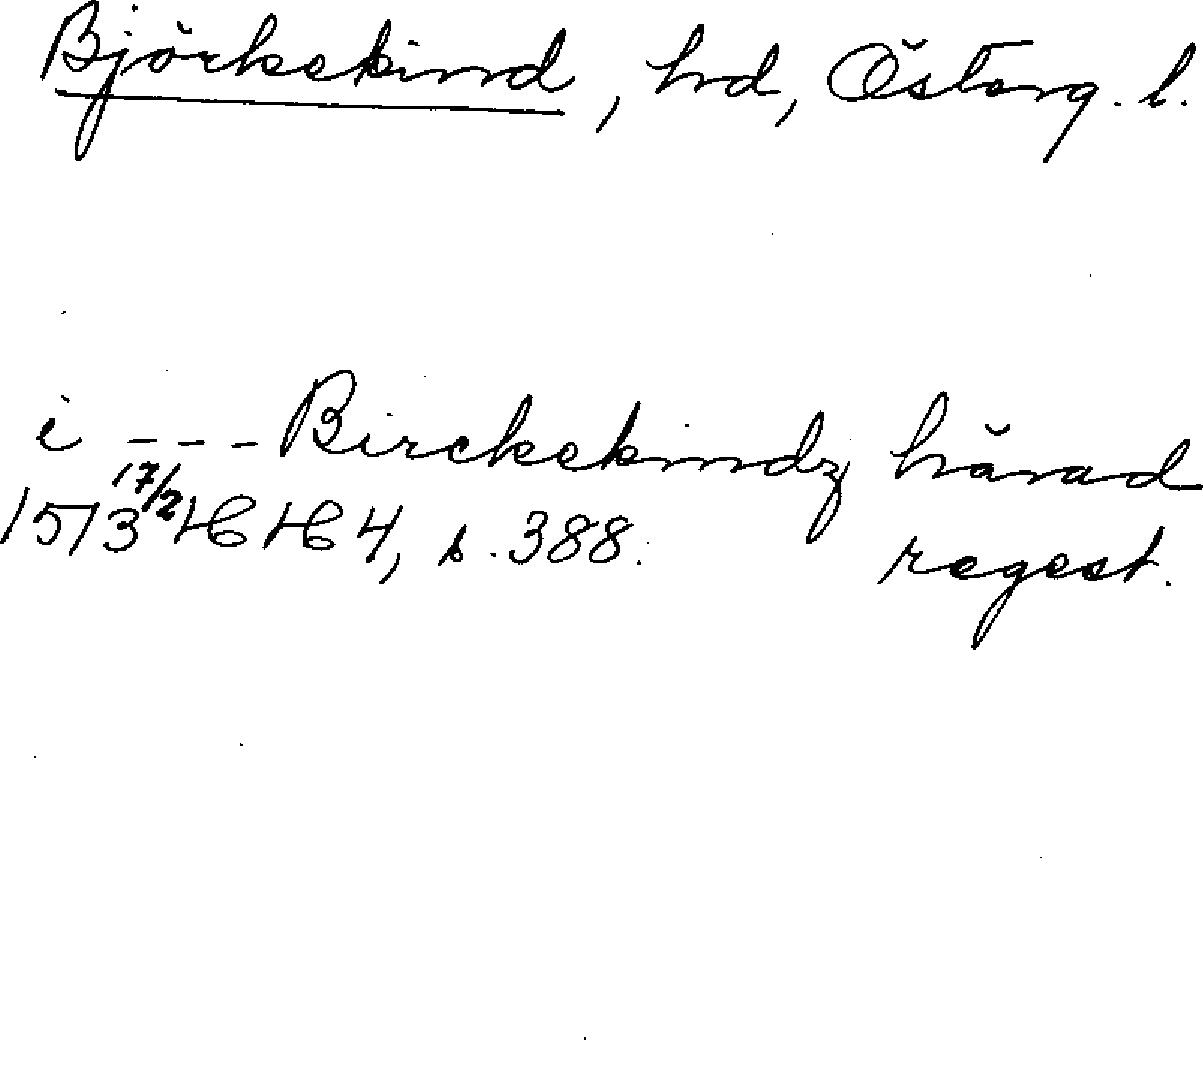 Björkekind, hd, Österg. l.
i --- Birckekindz härad
1573 17/2 HH 4, s. 388. regest.